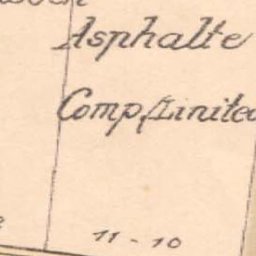 Asphalte
Comp. Linited
11-10